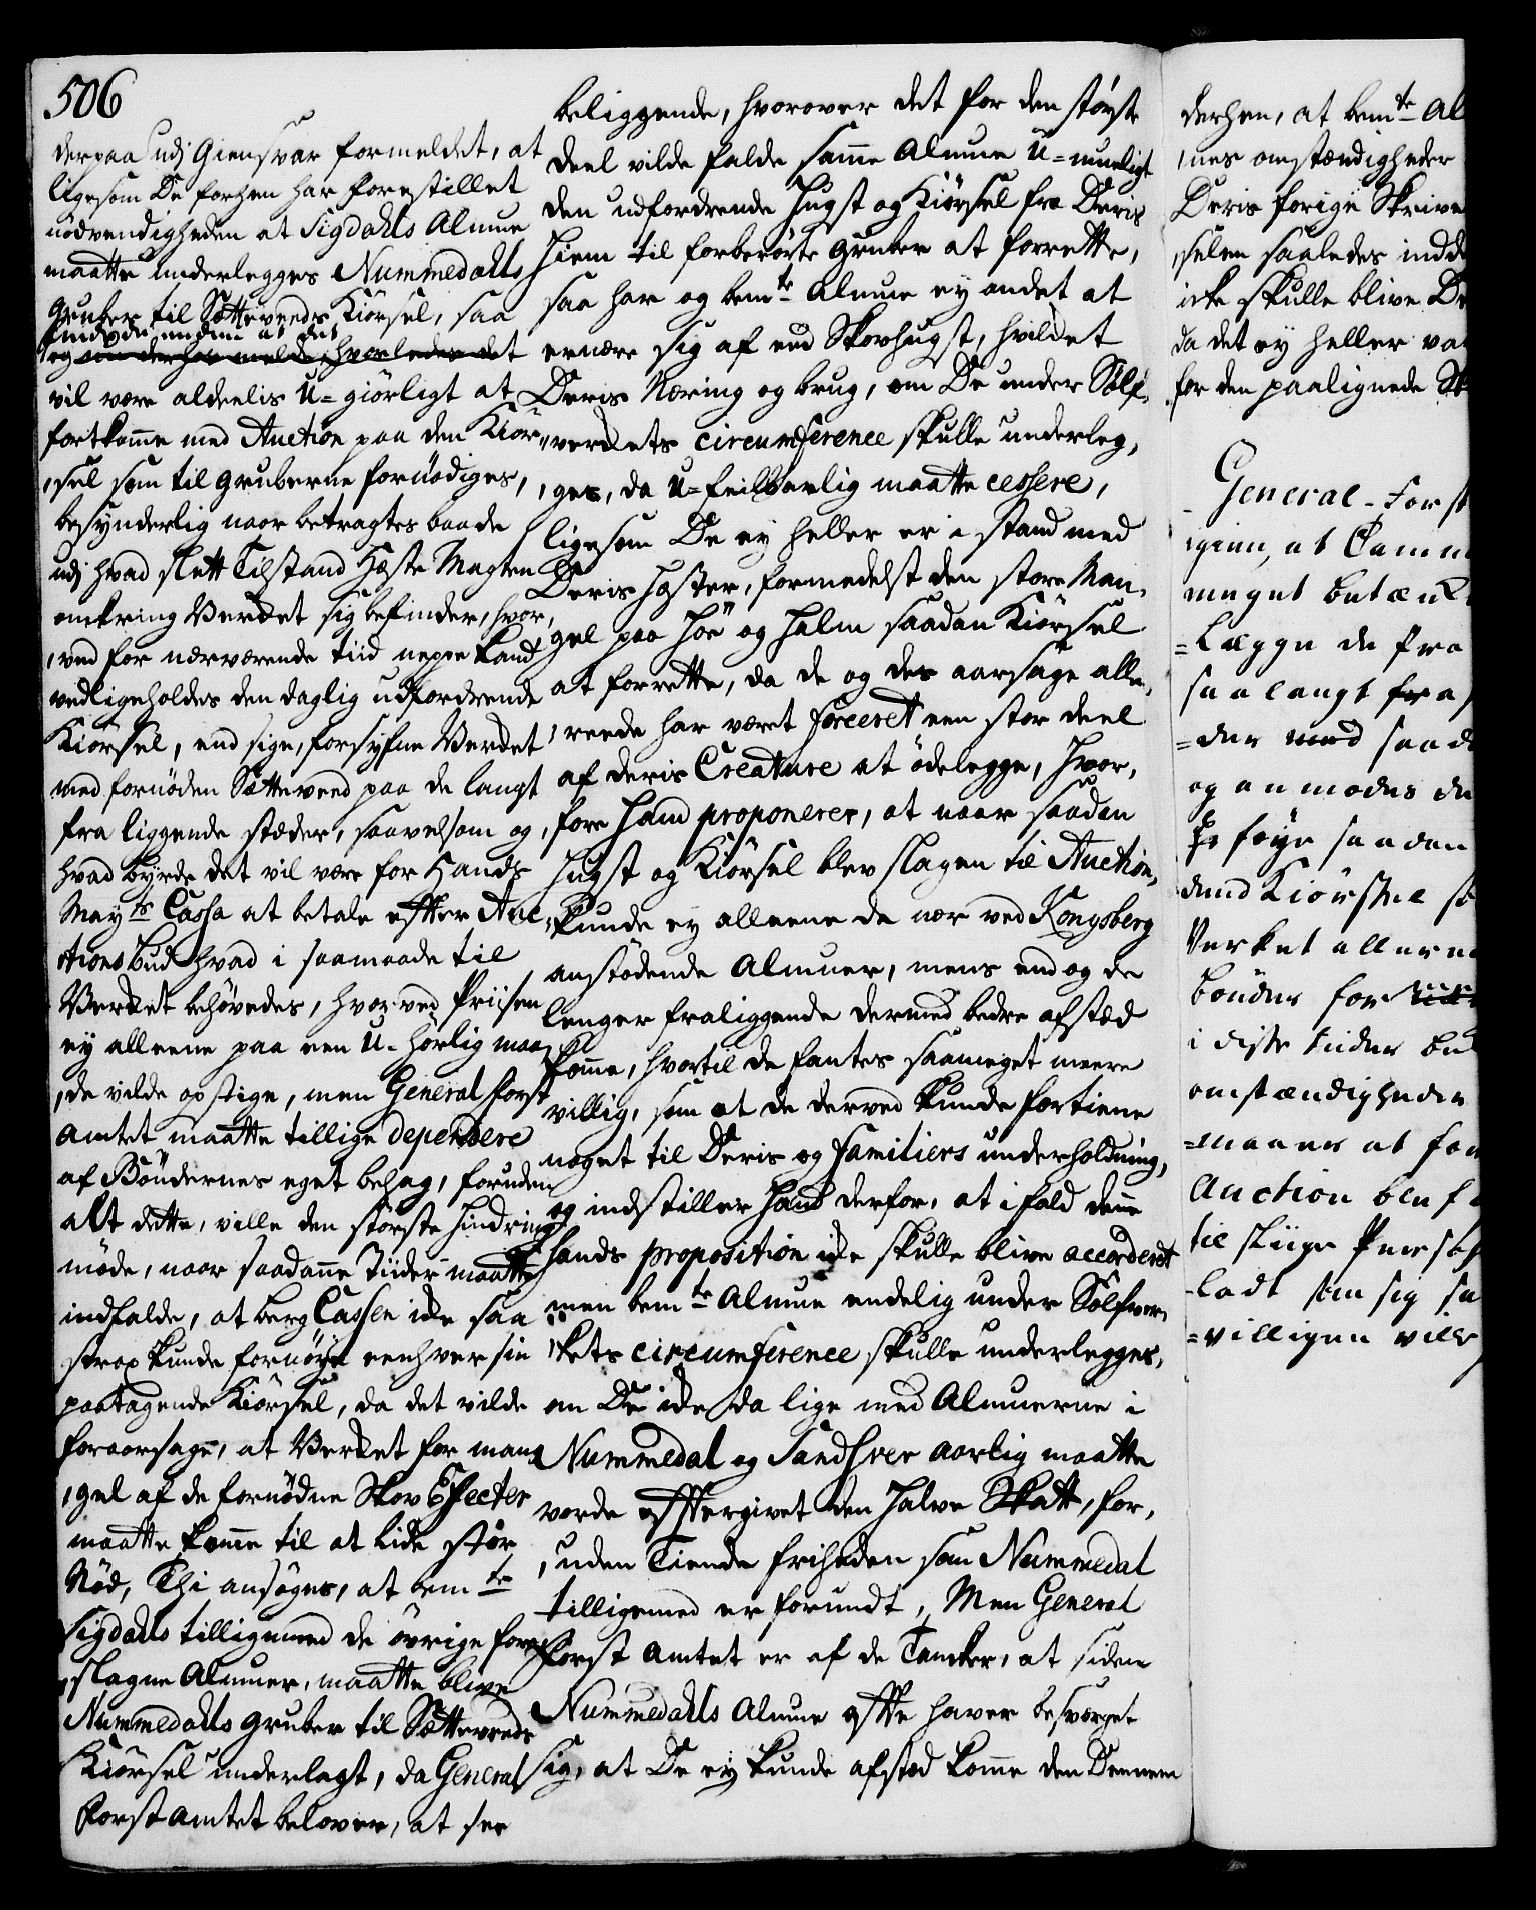 506
derpaa udj Giensvar formeldet, at
ligesom De forhen har forestillet
nödvendigheden at Sigdahls Almue
maatte underlegges Nummedahls
Gruber til Sætteveeds Kiörsel, saa
finder de endnu at det
og om derhos melde, hvorledes det
vil være aldeelis U-giörligt at
fortkomme med Auction paa den Kiör-
,sel som til gruberne fornödiges,
besynderlig naar betragtes baade
udj hvad slett Tilstand Hæste Magten
omkring Verket sig befinder, hvor,
,ved for nærværende tiid neppe kand
vedligeholdes den daglig udfordrende
Kiörsel, end sige, forsyfne Verket
med fornöden Sætteveed paa de langt
fra liggende stæder, saavelsom og,
hvad byrde det vil være for Hands
Mayts Cassa at betale efter Auc-
tions Bud hvad i saamaade til
Verket behövedes, hvor ved Priisen
ey alleene paa een U-horlig maa,
,de vilde opstige, men General Forst
Amtet maatte tillige dependere
af Böndernes eget behag, foruden
alt dette, ville den störste Hindring
möde, naar saadanne Tiider maatte
indfalde, at berg Cassen icke saa
strax kunde fornöye eenhver sin
paatagende Kiörsel, da det vilde
foraarsage, at Verket for mang
,gel af de fornödne Skov Effecter
maatte komme til at lide stor
Nöd, Thi ansöges, at bemte
Sigdahls tilligemed de övrige fore
,slagne Almuer, maatte blive
Nummedahls gruber til Sætteveeds
Kiörsel underlagt, da General
Forst Amtet belover, at see
beliggende, hvorover det for den störste
deel vilde falde samme Almue U-mueligt
den udfordrende Hugst og Kiörsel fra Deris
Hiem til forberörte gruber at forrette,
saa har og bemte Almue ey andet at
ernære sig af end Skovhugst, hvilcket
Deris Næring og brug, om De under Sölf-
,verkets circumference skulle underleg,
,ges, da U-feilbarlig maatte cessere,
ligesom De ey heller er i stand med
Deris Hæster, formedelst den store Man,
gel paa Höe og Halm saadan Kiörsel
at forrette, da de og des aarsage alle,
,reede har været forceret een stor deel
af deris Creature at ödelegge, hvor,
,fore Hand proponerer, at naar saadan
Hugst og Kiörsel blev slagen til Auction,
kunde ey alleene de nær ved Kongsberg
anstödende Almuer, mens end og de
lenger fraliggende dermed bedre afstæd
komme, hvortil de fantes saameget meere
villig, som at de derved kunde fortiene
noget til Deris og Familiers underholdning,
og indstiller Hand derfor, at ifald denne
Hands proposition icke skulle blive accorderet
men bemte Almue endelig under Sölfver,
,kets circumference skulle underlegges,
om De icke da lige med Almuerne i
Nummedal og Sandsver aarlig maatte
vorde efftergivet den halve Skatt, for,
,uden Tiende friheden som Nummedal
tilligemed er forundt, Men General
Forst Amtet er af de Tancker, at siden
Nummedahls Almue offte haver besværget
sig, at De ey kunde afstæd komme den Dennem
derhen, at bemte Al
,nes omstændigheder
Deris forige Skrive
,selen saaledes indde
icke skulle blive De
da det ey heller va
for den paalignede Sk
General-Forst
igien, at
meget betænk
=Lægge de fra
saa langt fra
=der med saad
og anmodes de
föye saadan
dend Kiörsel s
Verket allere
bönder for
i disse tiider
omstændigheder
=maaer at for
Auction blef
til sliige
-ladt sam sig sa
=villigen ville